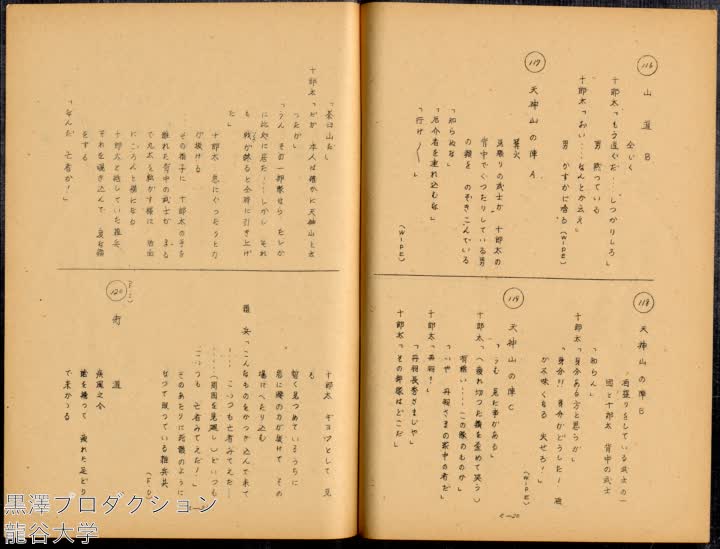 116
山道B
全じく
十郎太「もう直ぐだ…しっかりしろ」
男 黙っている
十郎太「おい……なんとか云え」
男 かすかに唸る (WIPE)
117
天神山の陣 A
篝火
見張りの武士が 十郎太の
背中でぐったりしている男
の顔を のぞきこんでいる
「知らぬな」
「厄介者を連れ込むな」
「行け──」
(WIPE)
118
天神山の陣B
団と十郎太 背中の武士
「知らん」
十郎太「身分ある方と思うが」
「身分!! 身分がどうした! 飯
が不味くなる 失せろ!」
(WIPE)
119
天神山の陣C
「うむ 見た事がある」
十郎太「(疲れ切った頬を歪めて笑う)
有難い……この隊のものか」
「いや 丹羽さまの家中の者だ」
十郎太「丹羽?」
「丹羽長秀さまじや」
十郎太「その部隊はどこだ」
E-20
「茶臼山だ」
十郎太「だが 本人は確かに天神山と云
ったが」
「うん その一部隊なら たしか
に此処に居た……しかし それ
も 戦が終ると全時に引き上げ
た」
十郎太 急にぐったりと力
が抜ける
その拍子に 十郎太の手を
離れた背中の武士が まる
で丸太を転がす様に 地面
にころんと横になる
十郎太と話していた雑兵
それを覗き込んで 変な顔
をする
「なんだ 亡者か!」
十郎太 ギョッとして 見
る
暫く見つめているうちに
急に腰の力が抜けて その
場にへたり込む
雑兵「こんなものをかつぎ込んで来て
……こいつも亡者みてえだ…
……(周囲を見廻し)どいつも
こいつも 亡者みてえだ!」
そのあたりに死骸のように
なって眠っている雑兵共
(F・O)
(F・I)
120
街道
疾風之介
槍を構って 疲れた足どり
で来かゝる
黒澤プロダクション
龍谷大学